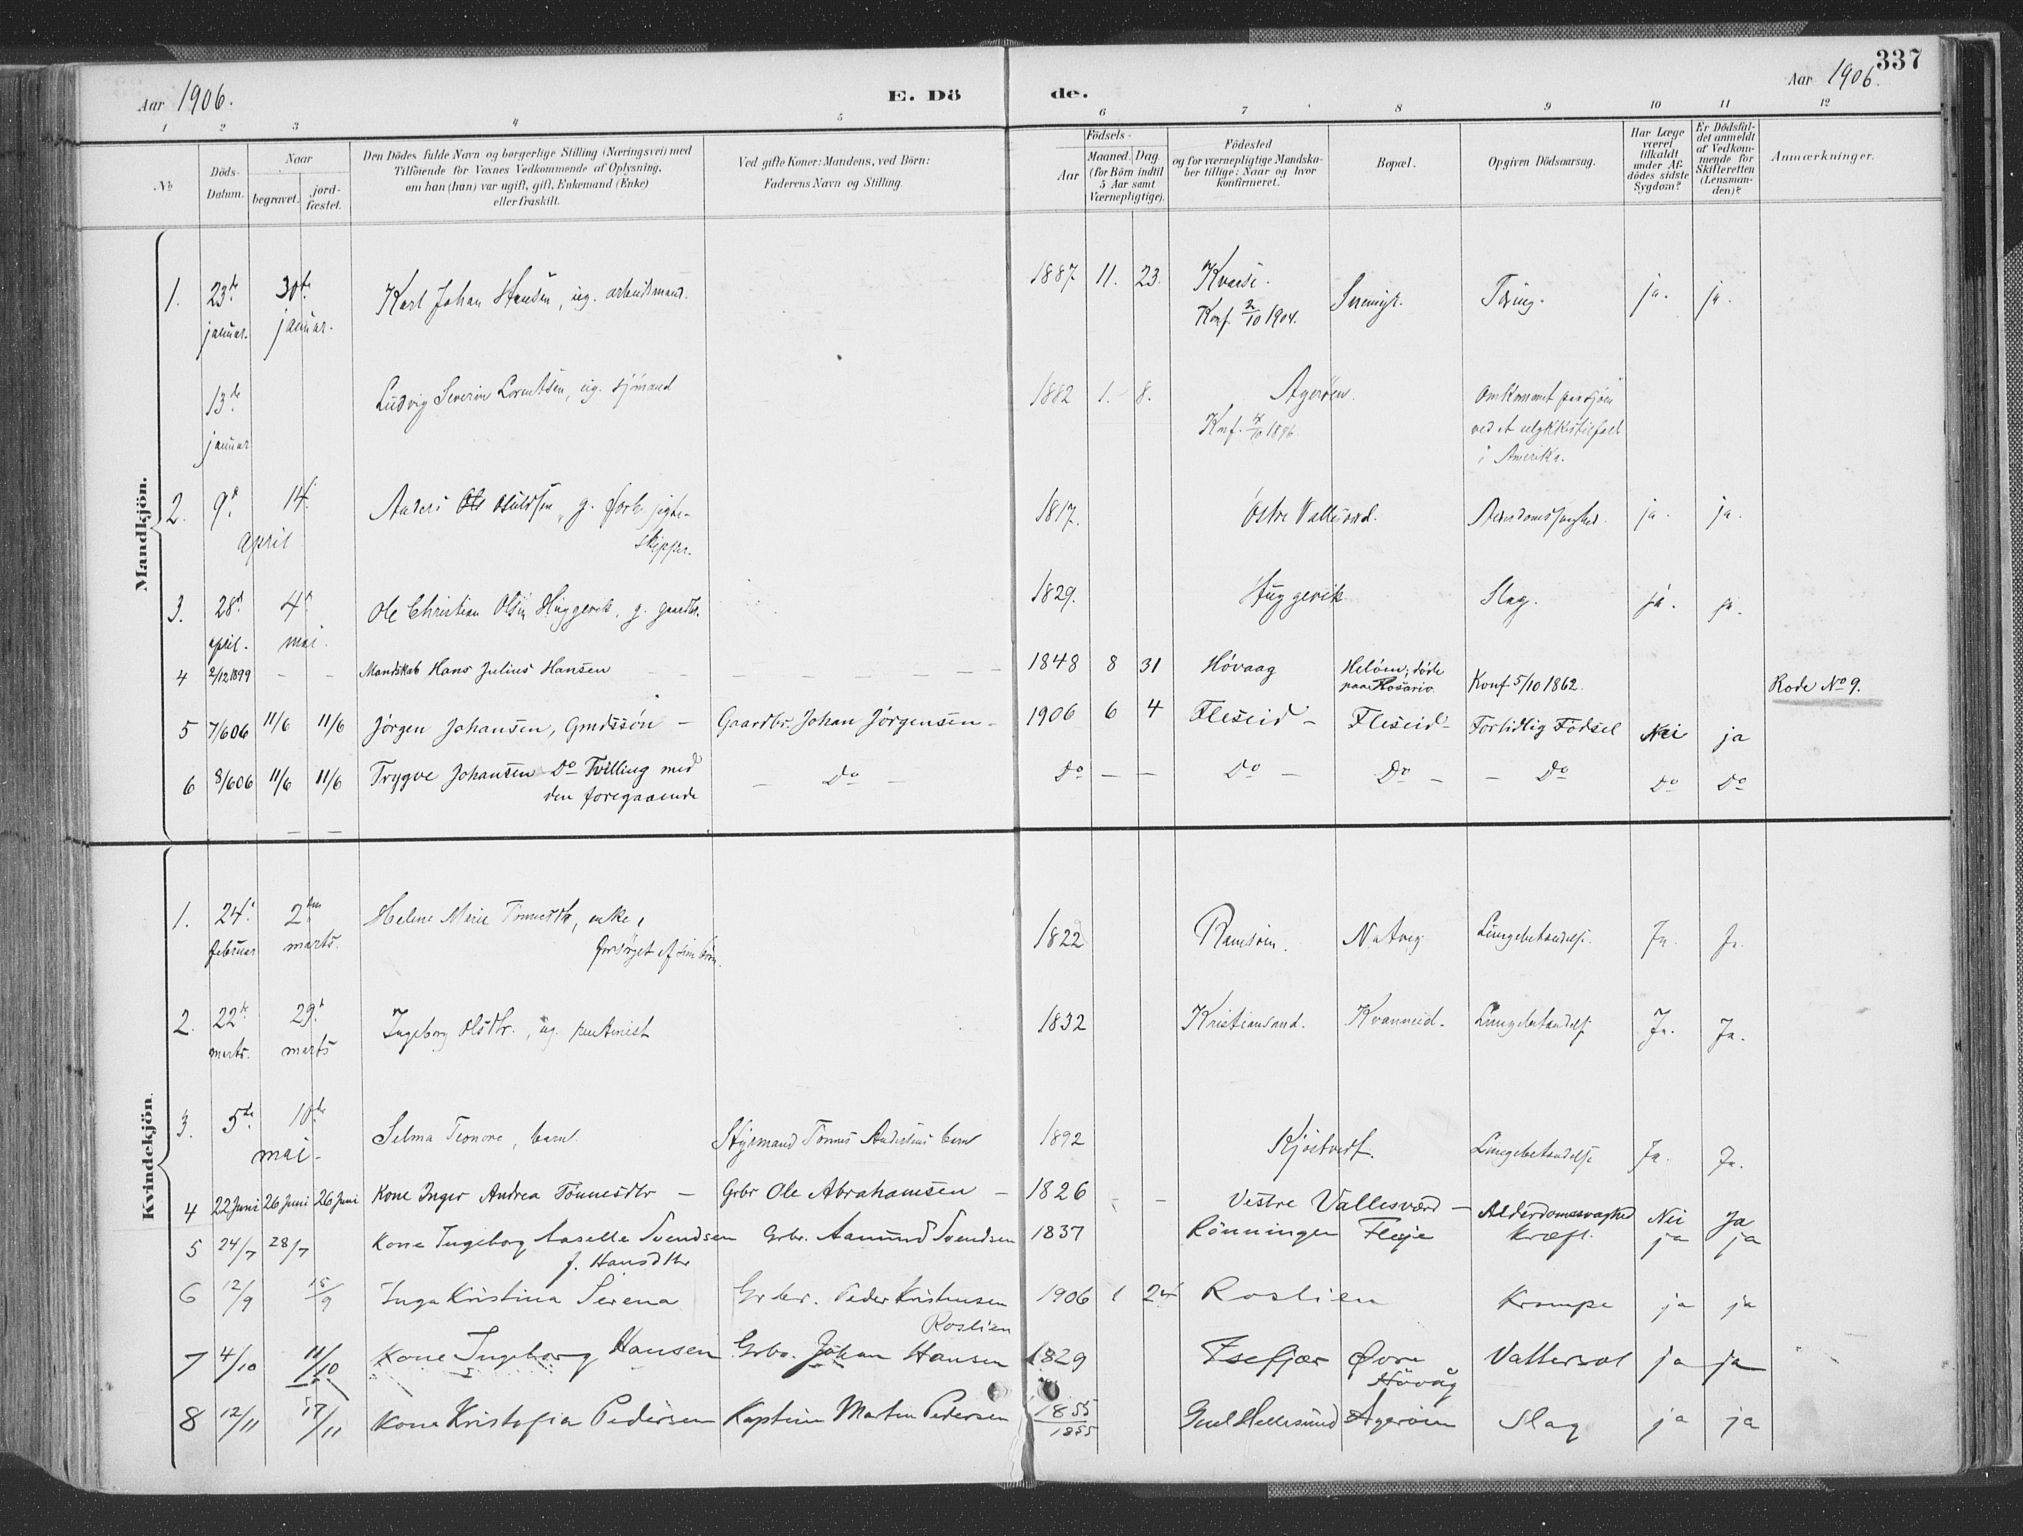 337
Aar 1906.
E. Dö de.
Aar 1906.
1 2 3 4 5 6 7 8 9 10 11 12
No
Döds-Datum.
Naar
begravet.
jord-fæstet.
Den Dödes fulde Navn og borgerlige Stilling (Næringsvei) med
Tilföiende for Voxnes Vedkommende af Oplysning,
om han (hun) var ugift, gift, Enkemand (Enke)
eller fraskilt.
Ved gifte Koner: Mandens, ved Börn:
Faderens Navn og Stilling.
Födsels-
Aar
Maaned. Dag.
(for Börn indtil
5 Aar samt
Værnepligtige).
Födested
og for værnepligtige Mandska-
ber tillige: Naar og hvor
konfirmeret.
Bopæl.
Opgiven Dödsaarsag.
Har Læge
været
tilkaldt
under Af-
dödes sidste
Sygdom?
Er Dödsfal-
det anmeldt
af Vedkom-
mende for
Skifteretten
(Lensman-
den)?
Anmærkninger.
Mandkjön.
1. 23de januar. 30te januar. Karl Johan Hansen, ug. arbeidsmand. 1887. 11. 23. Konf. 2/10 1904. Tæring. ja. ja.
13de januar Ludvig Severin Lorentsen, ug. sjömand 1882 1. 8. Ageröen. Konf. 4/10 1896 Omkommet paa sjöen
ved et ulykkestilfælde
i Amerika.
2. 9de 14de april Anders Olsen, g. forh. jagte-
skipper. 1817. Östre Vallesværd. Alderdomssvaghed. ja. ja.
3. 28de april. 4de mai. Ole Christian Olsen Huggevik, g. gaardbr. 1829. Huggevik Slag. ja. ja.
4 2/12 1899 - - Mandskab Hans Julius Hansen - - - 1848 8 31 Hövaag Helöen; döde
paa Rosario. Konf 5/10 1862. Rode No 9.
5 7/6 06 11/6 11/6 Jørgen Johansen, Gmdssön - Gaardbr. Johan Jørgensen - 1906 6 4 Fleseid - Fleseid - Fortidlig Födsel Nei ja
6 8/6 06 11/6 11/6 Trygve Johansen Do Tvilling med
den foregaaende - Do - Do - - Do - Do - - Do Do Do
Kvindekjön.
1. 24de februar 2den marts. Helene Marie Tönnesdtr, enke,
forsörget af sine börn. 1822 Ramsöen. Lungebetændelse. Ja. Ja.
2. 22de marts. 29de marts Ingeborg Olsdtr., ug. 1832 Kristiansand. Kvanneid. Lungebetændelse Ja. Ja.
3. 5te 10de mai. Selma Teonore, barn. Styrmand Tönnes Andersens barn 1892 Kjöstvedt. Lungebetændelse Ja. Ja.
4 22 Juni 26 Juni 26 Juni Kone Inger Andrea Tönnesdtr - Grbr Ole Abrahamsen - 1826 - - Vestre Vallesværd - Alderdomssvaghed Nei Ja
5 24/7 28/7 Kone Ingeborg Aaselle Svendsen
f. Hansdtr Grbr. Aanund Svendsen 1837 Rönningen Fleje Kræft. ja ja
6 12/9 15/9 Inga Kristina Serena Grbr. Peder Kristensen
Roslien 1906 1 24 Roslien Krampe ja ja
7 4/10 11/10 Kone Ingeborg Hansen Grbr. Johan Hansen 1829 Isefjær Övre
Hövåg Vattersot ja ja
8 12/11 17/11 Kone Kristofia Pedersen Kaptein Martin Pedersen 1855
1855 Gml Hellesund Ageröen Slag ja ja